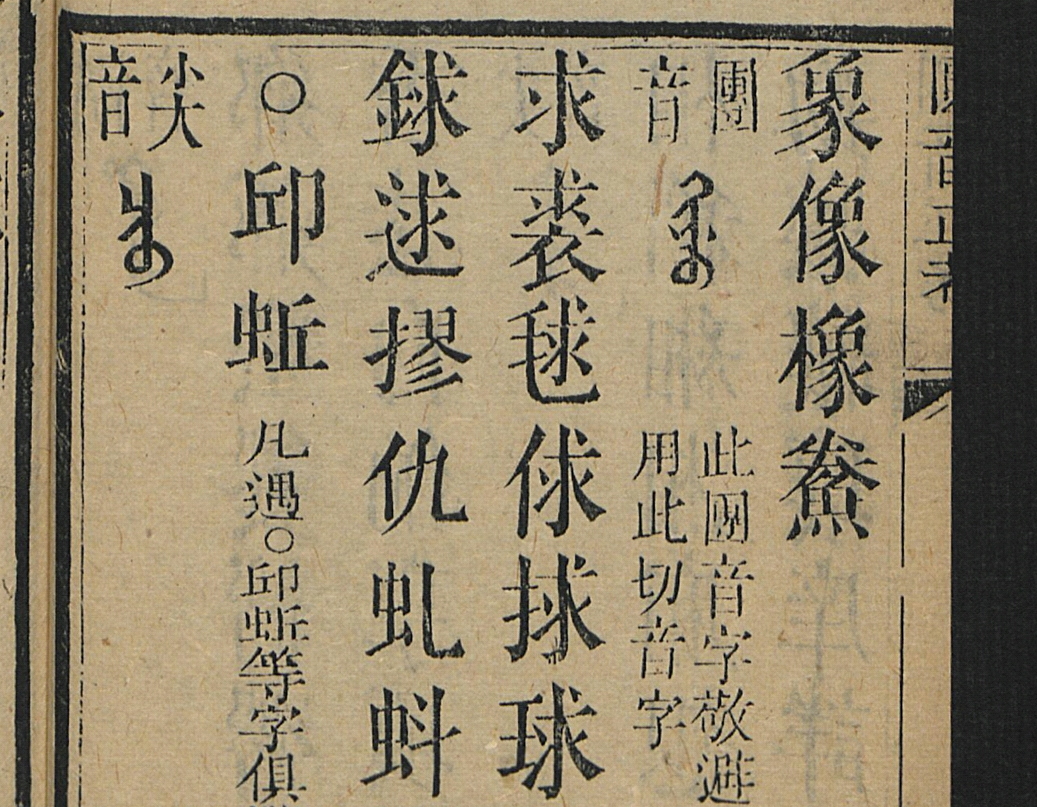 圓音正考
象像橡鮝
團音
此團音字敬避
用此切音字
求裘毬俅捄球
銶逑摎仇虬蚪
○邱蚯
凡遇○邱蚯等字俱
尖音